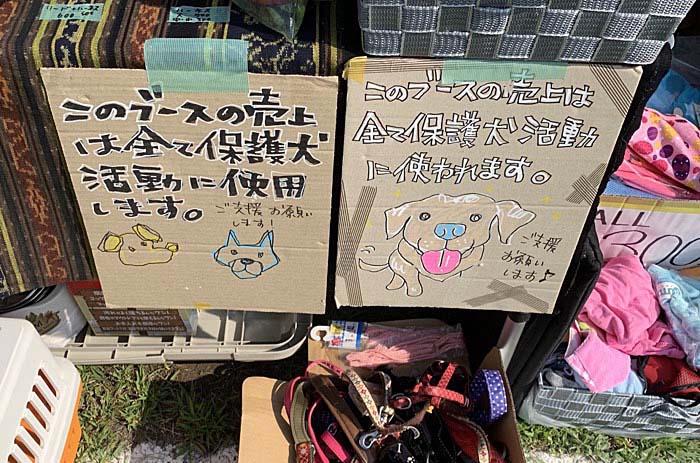 600 500
このブースの売上
は全て保護犬
活動に使用
します。
ご支援 お願い
します!
このブースの売上は
全て保護犬活動
に使われます。
ご支援
お願い
します♪
ALL
300